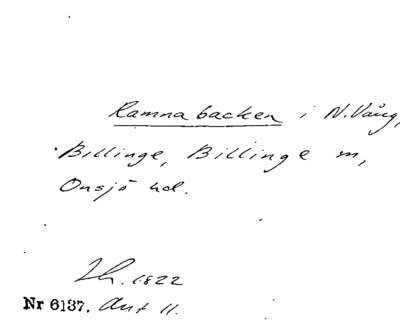 Ramnabacken i N. Vång,
Billinge, Billinge m,
Onsjö hd.
Lh. 1822
Nr 6137. Ant 11.